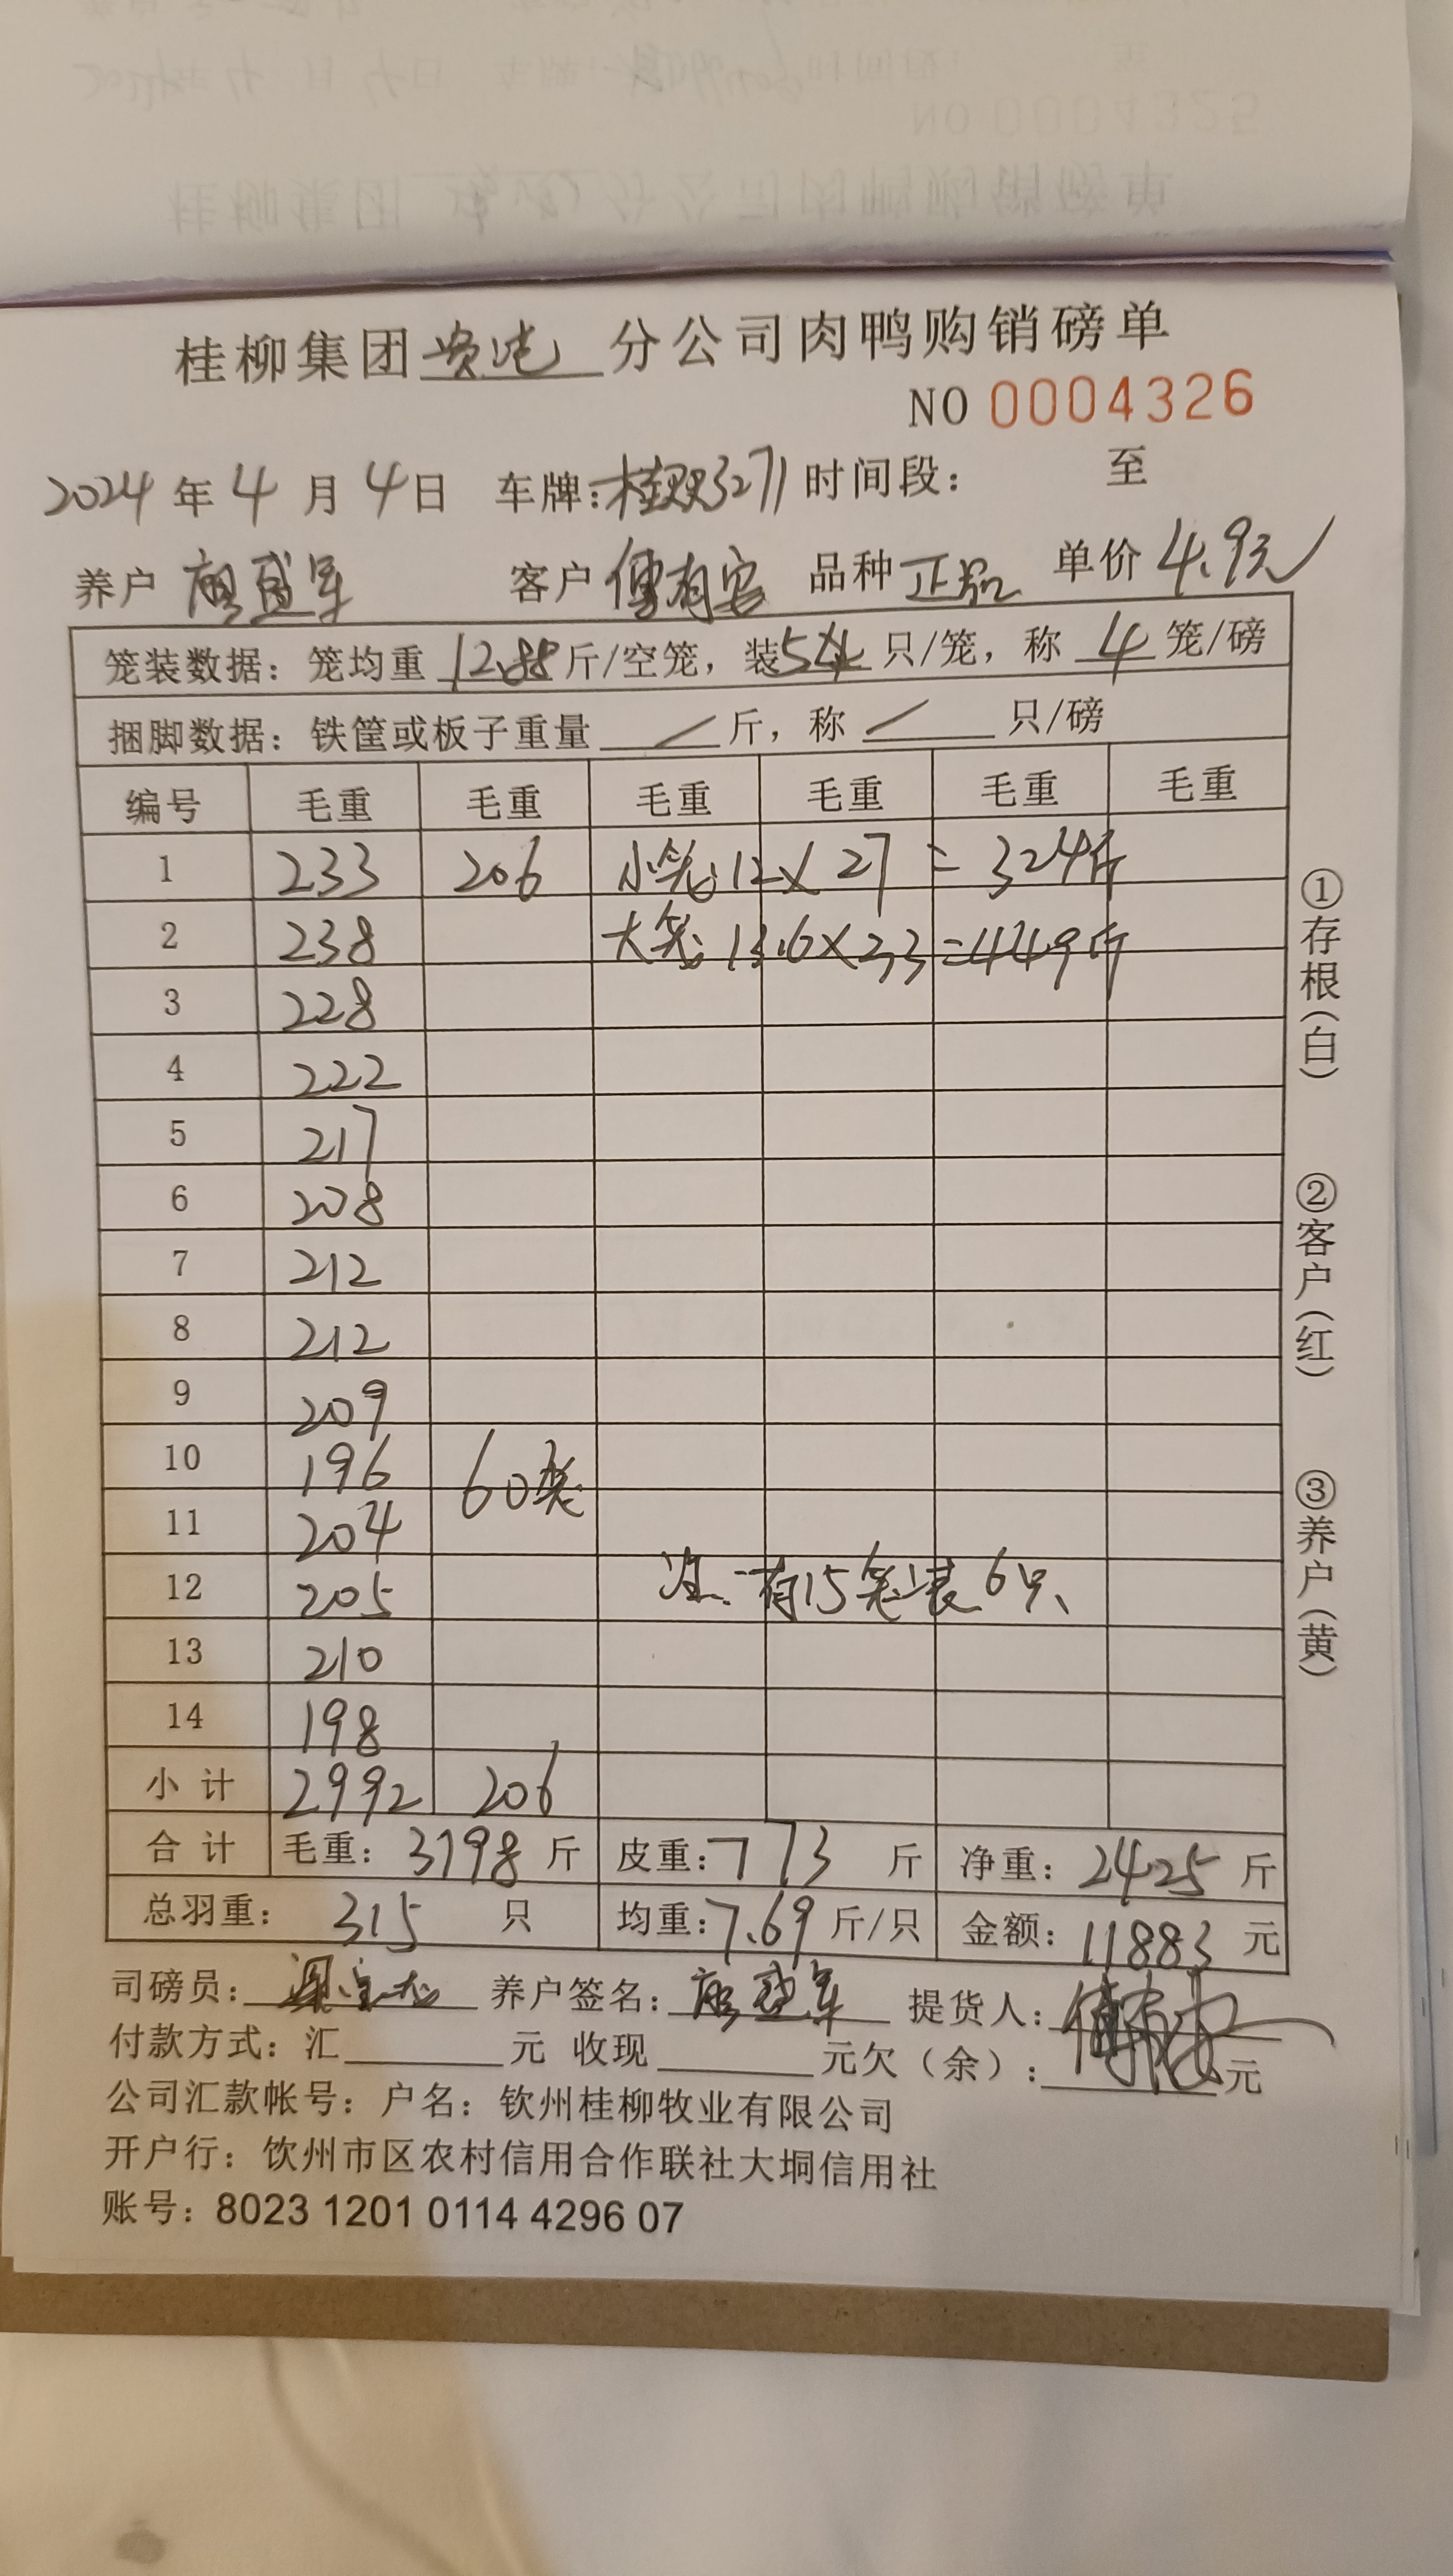 NO 0004325
桂柳集团 分公司肉鸭购销磅单
NO 0004326
2024 年 4 月 4 日 车牌: 桂 3271 时间段: 至
养户 盛军 客户 傅有 品种 正品 单价 4.9元
笼装数据: 笼均重 12.88 斤/空笼, 装 5 只/笼, 称 4 笼/磅
捆脚数据: 铁筐或板子重量 / 斤, 称 / 只/磅
编号 毛重 毛重 毛重 毛重 毛重 毛重
1 233 206 小笼: 12 × 27 = 324斤
2 238 大笼: 13.6 × 33 = 449斤
3 228
4 222
5 217
6 208
7 212
8 212
9 209
10 196 60笼
11 204
12 205 注: 有15笼装6只
13 210
14 198
小计 2992 206
合计 毛重: 3198 斤 皮重: 773 斤 净重: 2425 斤
总羽重: 315 只 均重: 7.69 斤/只 金额: 11883 元
司磅员: 养户签名: 盛军 提货人: 傅有
付款方式: 汇 元 收现 元欠(余): 元
公司汇款帐号: 户名: 钦州桂柳牧业有限公司
开户行: 钦州市区农村信用合作联社大垌信用社
账号: 8023 1201 0114 4296 07
①存根(白)
②客户(红)
③养户(黄)